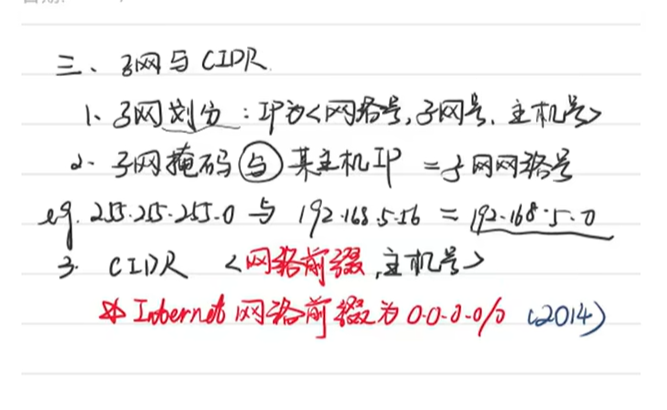 三、子网与CIDR
1、子网划分:IP为<网络号,子网号,主机号>
2. 子网掩码与某主机IP = 子网网络号
eg. 255.255.255.0 与 192.168.5.56 = 192.168.5.0
3. CIDR <网络前缀,主机号>
* Internet网络前缀为0.0.0.0/0 (2014)